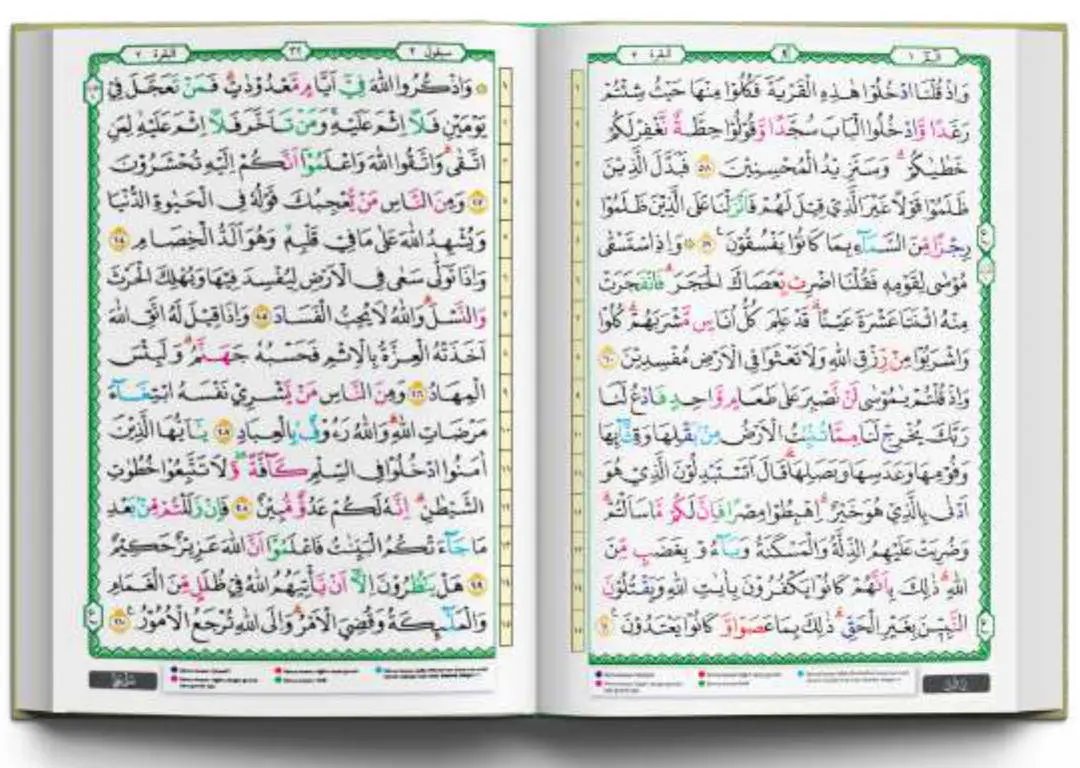 البقرة ٢
٩
الۤمّۤ ١
وَاِذْ قُلْنَا ادْخُلُوْا هٰذِهِ الْقَرْيَةَ فَكُلُوْا مِنْهَا حَيْثُ شِئْتُمْ
رَغَدًا وَّادْخُلُوا الْبَابَ سُجَّدًا وَّقُوْلُوْا حِطَّةٌ نَّغْفِرْ لَكُمْ
خَطٰيٰكُمْ ۗ وَسَنَزِيْدُ الْمُحْسِنِيْنَ ٥٨ فَبَدَّلَ الَّذِيْنَ
ظَلَمُوْا قَوْلًا غَيْرَ الَّذِيْ قِيْلَ لَهُمْ فَاَنْزَلْنَا عَلَى الَّذِيْنَ ظَلَمُوْا
رِجْزًا مِّنَ السَّمَاۤءِ بِمَا كَانُوْا يَفْسُقُوْنَ ࣖ ٥٩ ۞ وَاِذِ اسْتَسْقٰى
مُوْسٰى لِقَوْمِهٖ فَقُلْنَا اضْرِبْ بِّعَصَاكَ الْحَجَرَۗ فَانْفَجَرَتْ
مِنْهُ اثْنَتَا عَشْرَةَ عَيْنًا ۗ قَدْ عَلِمَ كُلُّ اُنَاسٍ مَّشْرَبَهُمْ ۗ كُلُوْا
وَاشْرَبُوْا مِنْ رِّزْقِ اللّٰهِ وَلَا تَعْثَوْا فِى الْاَرْضِ مُفْسِدِيْنَ ٦٠
وَاِذْ قُلْتُمْ يٰمُوْسٰى لَنْ نَّصْبِرَ عَلٰى طَعَامٍ وَّاحِدٍ فَادْعُ لَنَا
رَبَّكَ يُخْرِجْ لَنَا مِمَّا تُنْۢبِتُ الْاَرْضُ مِنْۢ بَقْلِهَا وَقِثَّاۤىِٕهَا
وَفُوْمِهَا وَعَدَسِهَا وَبَصَلِهَا ۗ قَالَ اَتَسْتَبْدِلُوْنَ الَّذِيْ هُوَ
اَدْنٰى بِالَّذِيْ هُوَ خَيْرٌ ۗ اِهْبِطُوْا مِصْرًا فَاِنَّ لَكُمْ مَّا سَاَلْتُمْ ۗ
وَضُرِبَتْ عَلَيْهِمُ الذِّلَّةُ وَالْمَسْكَنَةُ وَبَاۤءُوْ بِغَضَبٍ مِّنَ
اللّٰهِ ۗ ذٰلِكَ بِاَنَّهُمْ كَانُوْا يَكْفُرُوْنَ بِاٰيٰتِ اللّٰهِ وَيَقْتُلُوْنَ
النَّبِيّٖنَ بِغَيْرِ الْحَقِّ ۗ ذٰلِكَ بِمَا عَصَوْا وَّكَانُوْا يَعْتَدُوْنَ ࣖ ٦١
البقرة ٢
٣٢
سيقول ٢
۞ وَاذْكُرُوا اللّٰهَ فِيْٓ اَيَّامٍ مَّعْدُوْدٰتٍ ۗ فَمَنْ تَعَجَّلَ فِيْ
يَوْمَيْنِ فَلَآ اِثْمَ عَلَيْهِ ۚ وَمَنْ تَاَخَّرَ فَلَآ اِثْمَ عَلَيْهِ ۙ لِمَنِ
اتَّقٰى ۗ وَاتَّقُوا اللّٰهَ وَاعْلَمُوْٓا اَنَّكُمْ اِلَيْهِ تُحْشَرُوْنَ
٢٠٣ وَمِنَ النَّاسِ مَنْ يُّعْجِبُكَ قَوْلُهٗ فِى الْحَيٰوةِ الدُّنْيَا
وَيُشْهِدُ اللّٰهَ عَلٰى مَا فِيْ قَلْبِهٖ ۙ وَهُوَ اَلَدُّ الْخِصَامِ ٢٠٤
وَاِذَا تَوَلّٰى سَعٰى فِى الْاَرْضِ لِيُفْسِدَ فِيْهَا وَيُهْلِكَ الْحَرْثَ
وَالنَّسْلَ ۗ وَاللّٰهُ لَا يُحِبُّ الْفَسَادَ ٢٠٥ وَاِذَا قِيْلَ لَهُ اتَّقِ اللّٰهَ
اَخَذَتْهُ الْعِزَّةُ بِالْاِثْمِ فَحَسْبُهٗ جَهَنَّمُ ۗ وَلَبِئْسَ
الْمِهَادُ ٢٠٦ وَمِنَ النَّاسِ مَنْ يَّشْرِيْ نَفْسَهُ ابْتِغَاۤءَ
مَرْضَاتِ اللّٰهِ ۗ وَاللّٰهُ رَءُوْفٌۢ بِالْعِبَادِ ٢٠٧ يٰٓاَيُّهَا الَّذِيْنَ
اٰمَنُوا ادْخُلُوْا فِى السِّلْمِ كَاۤفَّةً ۖ وَّلَا تَتَّبِعُوْا خُطُوٰتِ
الشَّيْطٰنِ ۗ اِنَّهٗ لَكُمْ عَدُوٌّ مُّبِيْنٌ ٢٠٨ فَاِنْ زَلَلْتُمْ مِّنْۢ بَعْدِ
مَا جَاۤءَتْكُمُ الْبَيِّنٰتُ فَاعْلَمُوْٓا اَنَّ اللّٰهَ عَزِيْزٌ حَكِيْمٌ
٢٠٩ هَلْ يَنْظُرُوْنَ اِلَّآ اَنْ يَّأْتِيَهُمُ اللّٰهُ فِيْ ظُلَلٍ مِّنَ الْغَمَامِ
وَالْمَلٰۤىِٕكَةُ وَقُضِيَ الْاَمْرُ ۗ وَاِلَى اللّٰهِ تُرْجَعُ الْاُمُوْرُ ࣖ ٢١٠